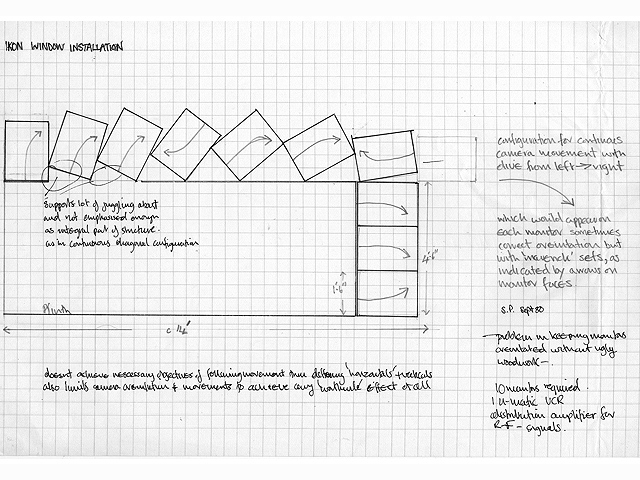 IKON WINDOW INSTALLATION
configuration for continous
camera movement with
clive from left → right
which would appear on
each monitor sometimes
correct orientation but
with 'maverick' sets, as
indicated by arrows on
monitor faces
S.P. Sept 80
supports lot of juggling about
and not emphasised enough
as integral part of structure.
as in continuous diagonal configuration
4'-6"
1'-6"
Plinth
c 14'
– problem in keeping monitors
orientated without ugly
woodwork –
10 monitors required.
1 U-matic VCR
distribution amplifier for
R-F- signals.
doesn't achieve necessary objectives of following movement thru defining 'horizontals' + verticals
also limits camera orientation + movements to achieve any worthwhile effect at all